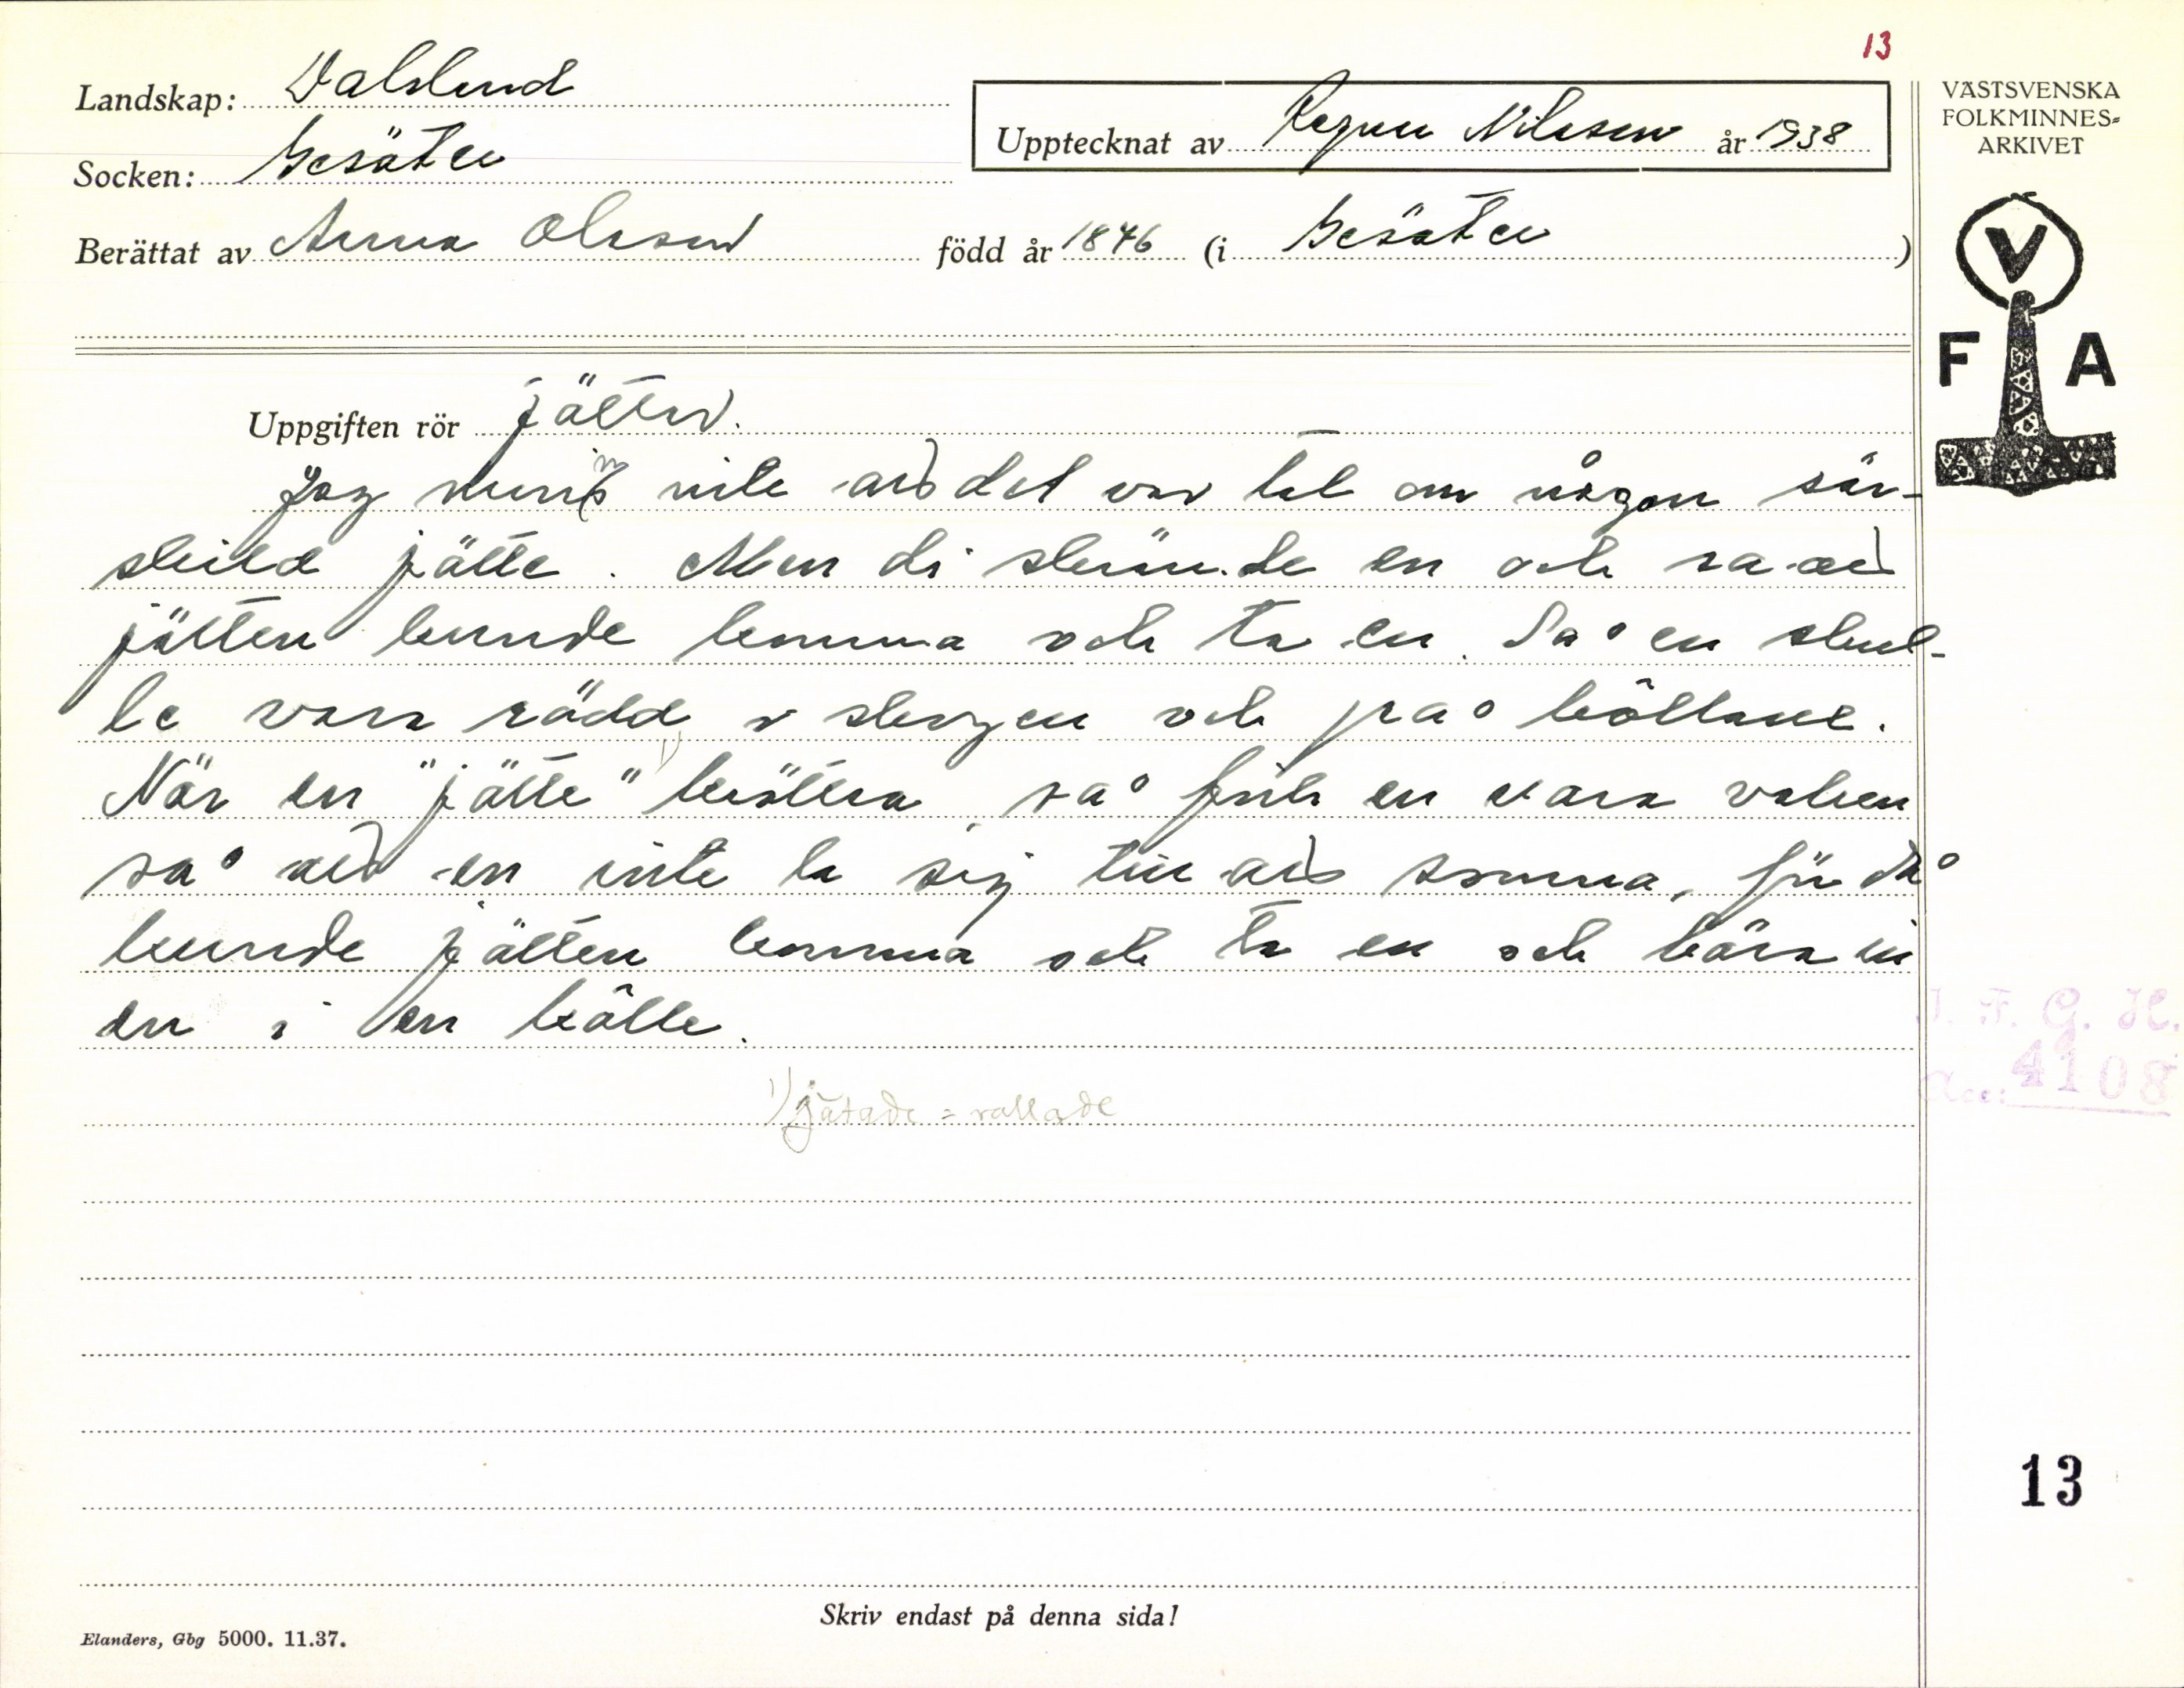 13
Landskap: Dalsland
Upptecknat av Ragnar Nilsson år 1938
Socken: Gesäter
Berättat av Anna Olsson född år 1846 (i Gesäter)
VÄSTSVENSKA
FOLKMINNES-
ARKIVET
V
F A
Uppgiften rör jätten.
Jag minns inte att det var tal om någon sär-
skild jätte. Men di skrämde en och sa att
jätten kunde komma och ta en. Så en skul-
le vara rädd i skogen och på köllane.
När en "jätte" 1) kröttera, så fick en vara vaken
så att en inte la sig till att somna, för då
kunde jätten komma och ta en och bära in
en i en kölle.
1) jätade = vallade
I. F. G. H.
Acc: 4108
13
Skriv endast på denna sida!
Elanders, Gbg 5000. 11.37.